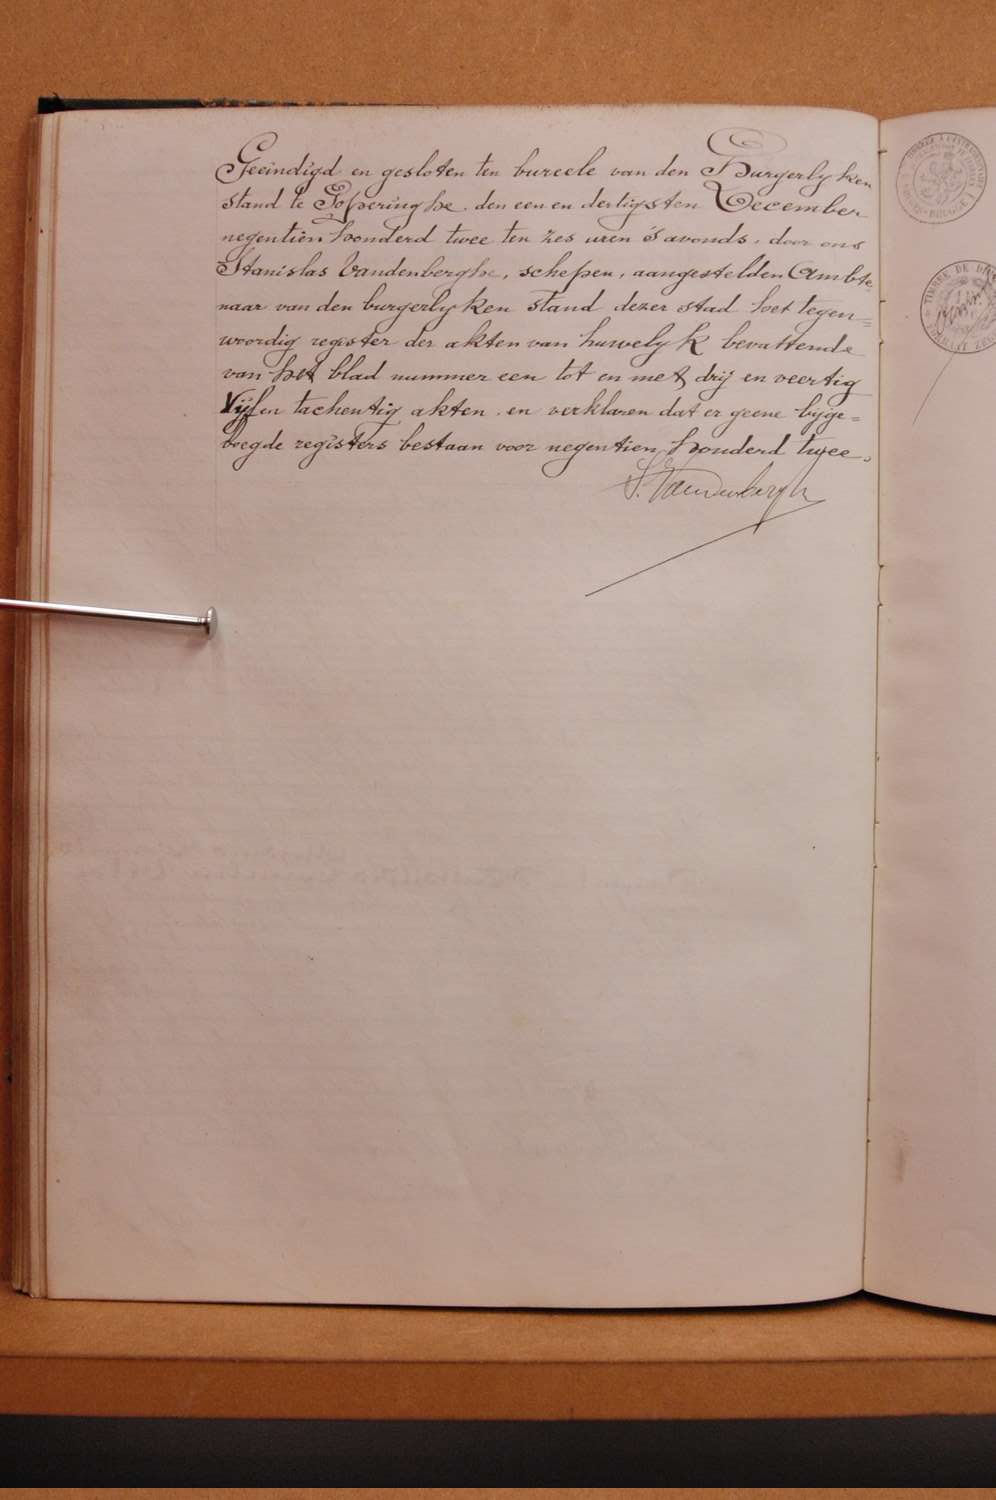 Geëindigd en gesloten ten bureele van den Burgerlyken
stand te Poperinghe, den een en dertigsten December
negentien honderd twee ten zes uren 's avonds, door ons
Stanislas Vandenberghe, schepen, aangestelden Ambte-
naar van den burgerlyken stand dezer stad het tegen=
woordig register der akten van huwelyk bevattende
van het blad nummer een tot en met drij en veertig
Vijf en tachentig akten, en verklaren dat er geene bijge=
voegde registers bestaan voor negentien honderd twee.
S. Vandenberghe
TIMBRE DE